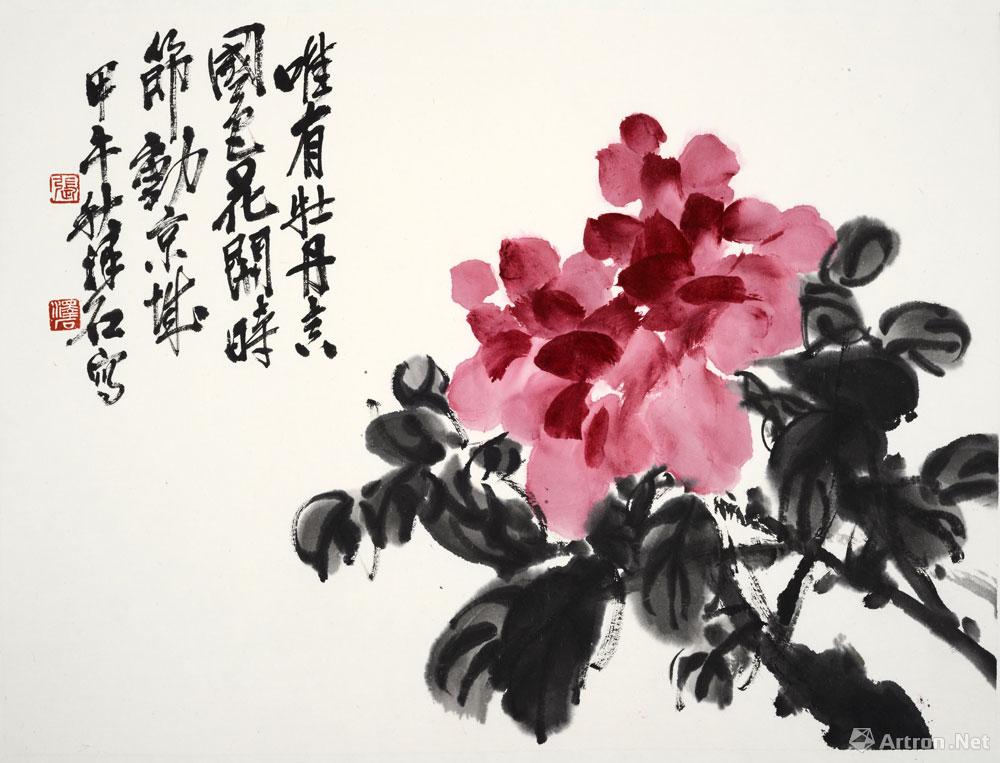 唯有牡丹真
國色花開時
節動京城
甲午秋澤石寫
張
澤石
Artron.Net